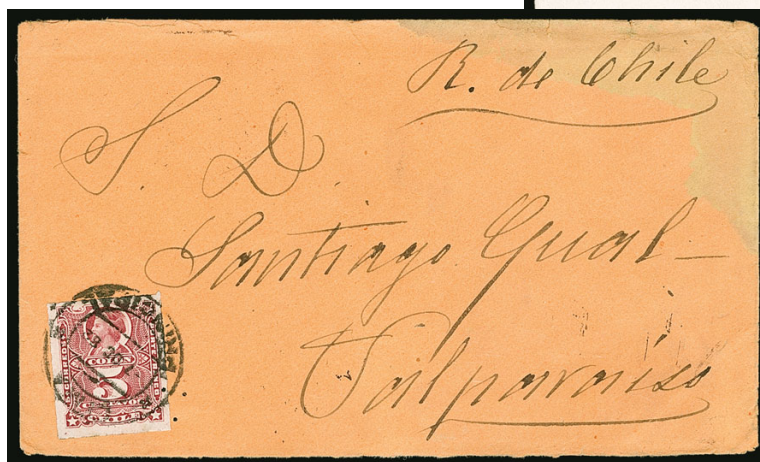 R. de Chile
S. D.
Santiago Gual–
Valparaiso
COLON